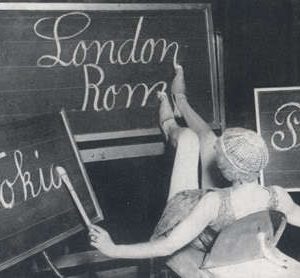 London
Rom
okio